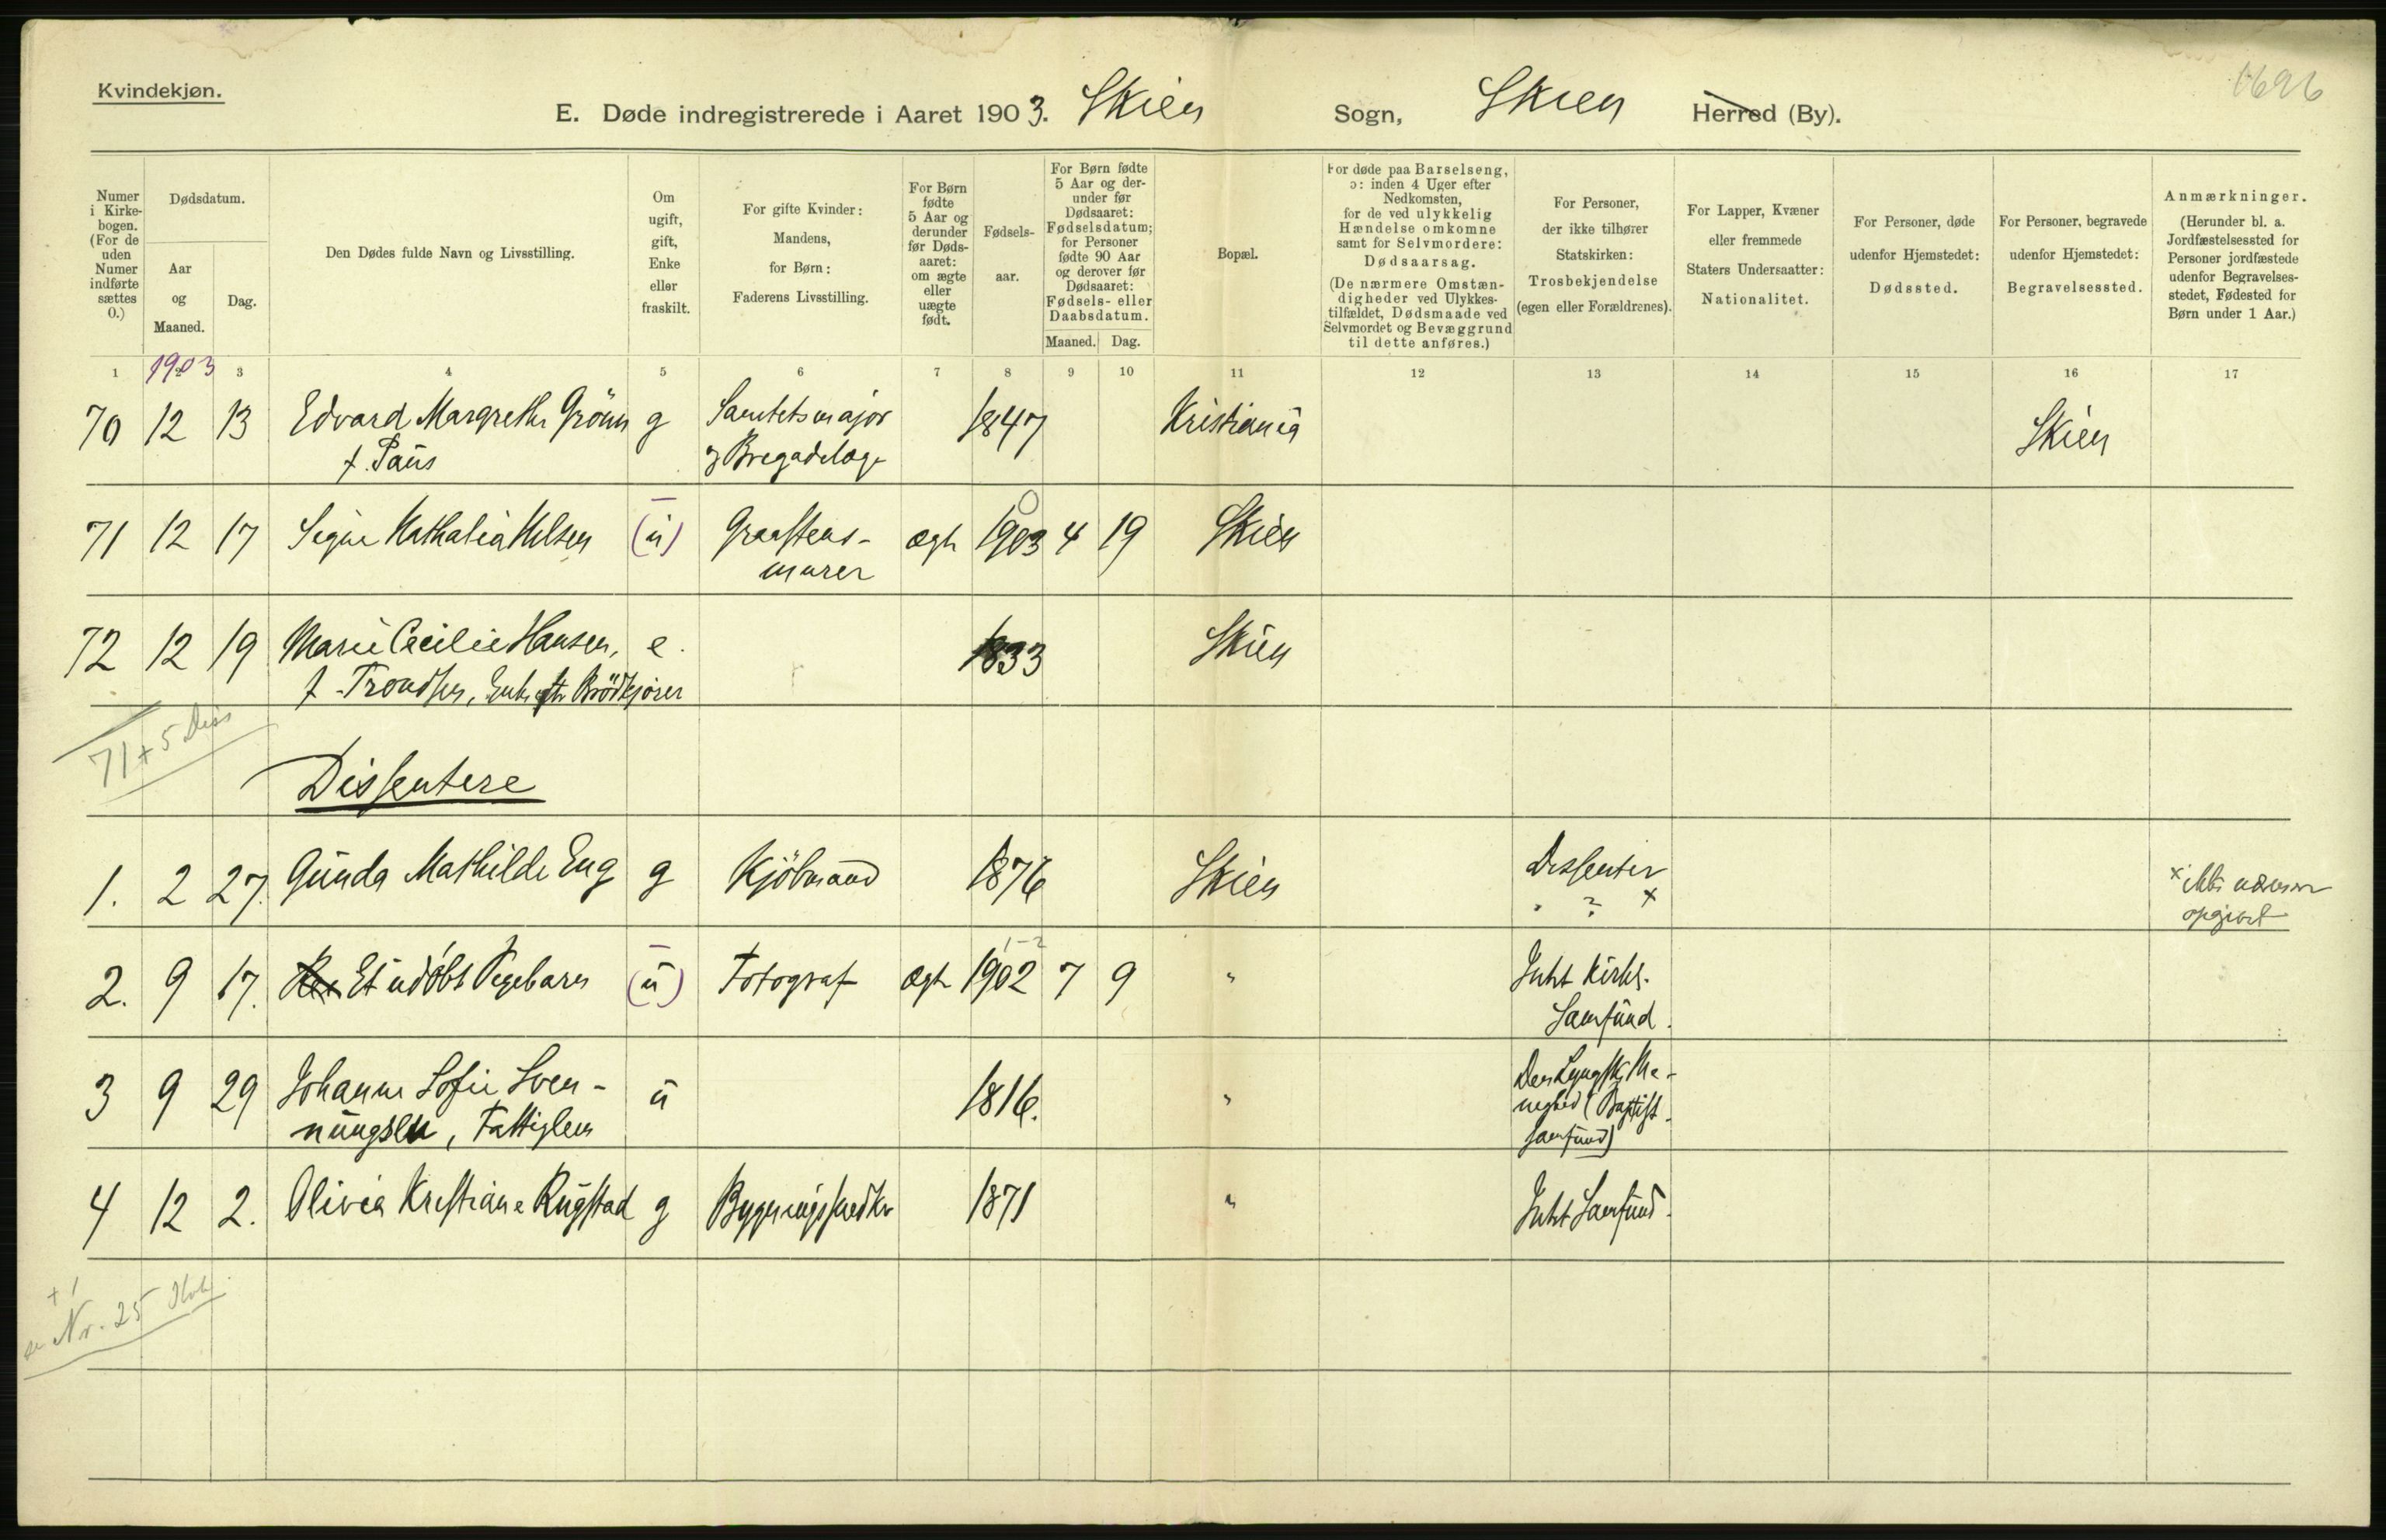 Kvindekjøn.
1696
E. Døde indregistrerede i Aaret 1903. Skien Sogn, Skien Herred (By).
Numer i Kirkebogen. (For de uden Numer indførte sættes 0.)
Dødsdatum.
Aar og Maaned.
Dag.
Den Dødes fulde Navn og Livsstilling.
Om ugift, gift, Enke eller fraskilt.
For gifte Kvinder: Mandens, for Børn: Faderens Livsstilling.
For Børn fødte 5 Aar og derunder før Dødsaaret: om ægte eller uægte født.
Fødselsaar.
For Børn fødte 5 Aar og derunder før Dødsaaret: Fødselsdatum; for Personer fødte 90 Aar og derover før Dødsaaret: Fødsels- eller Daabsdatum.
Maaned. Dag.
Bopæl.
For døde paa Barselseng, ɔ: inden 4 Uger efter Nedkomsten, for de ved ulykkelig Hændelse omkomne samt for Selvmordere: Dødsaarsag.
(De nærmere Omstændigheder ved Ulykkestilfældet, Dødsmaade ved Selvmordet og Bevæggrund til dette anføres.)
For Personer, der ikke tilhører Statskirken: Trosbekjendelse (egen eller Forældrenes).
For Lapper, Kvæner eller fremmede Staters Undersaatter: Nationalitet.
For Personer, døde udenfor Hjemstedet: Dødssted.
For Personer, begravede udenfor Hjemstedet: Begravelsessted.
Anmærkninger. (Herunder bl. a. Jordfæstelsessted for Personer jordfæstede udenfor Begravelsesstedet, Fødested for Børn under 1 Aar.)
1 2 3 4 5 6 7 8 9 10 11 12 13 14 15 16 17
1903
70 12 13 Edvard Margrethe Grönn g Sanitetsmajor 1847 Kristiania Skien
f. Paus & Bregadelæge
71 12 17 Signe Nathalia Nilsen (u) Graastens- ægte 1903 4 19 Skien
murer
72 12 19 Marie Cecilie Hansen, e. 1833 Skien
f. Trondsen, Enke eftr Brödkjörer
71 + 5 Diss
Dissentere
1. 2 27. Gunda Mathilde Eng g Kjöbmand 1876 Skien Dissenter
" ? x
x ikke nærmere
opgivet
2. 9 17. Et udöbt Pigebarn (u) Fotograf ægte 1902 7 9 " Intet Kirke-
Samfund.
3 9 29 Johanne Sofie Sven- u 1816. " Den Lyngske Me-
nungsen, Fattiglem nighed (Baptist-
samfund)
4 12 2. Olivia Kristiane Rugstad g Bygningssnedker 1871 " Intet Samfund.
+ 1
Nr. 25